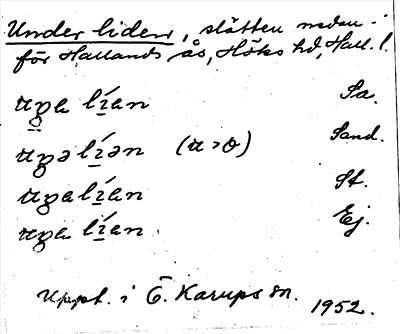 Under liden, slätten nedan-
för Hallands ås, Höks hd, Hall. l.
uga lían Sa.
ugəlíən (u>o) Sand.
ugalían St.
uga lían Ej.
Uppt. i Ö. Karups sn. 1952.